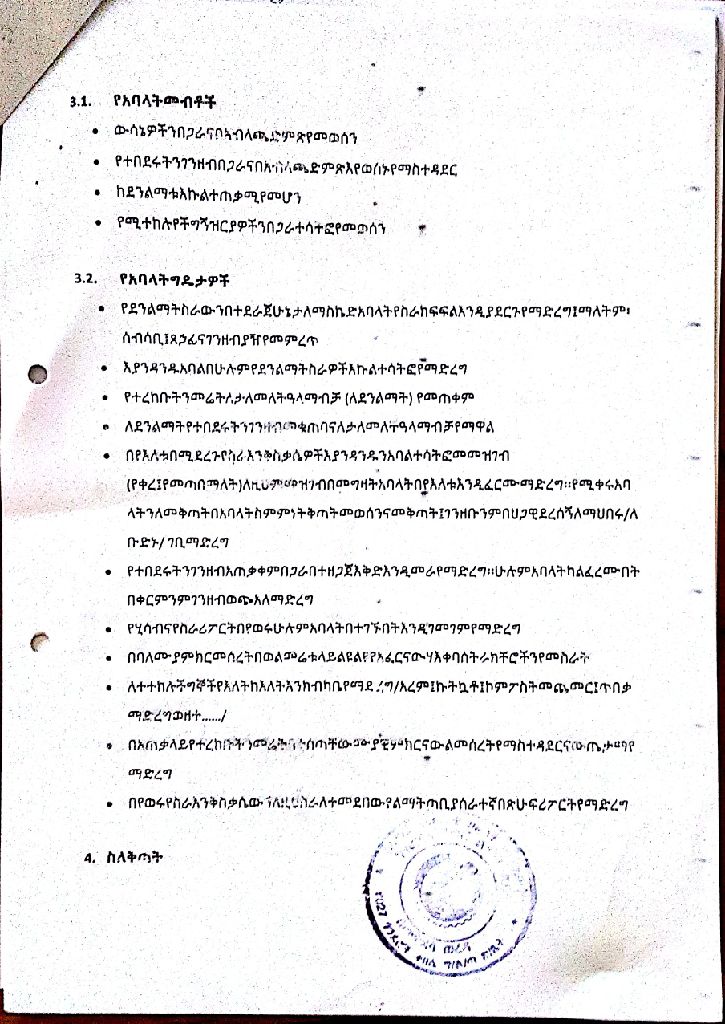 3.1. የአባላትመብቶች
• ውሳኔዎችንበጋራናበአብላጫድምጽየመወሰን
• የተበደሩትንገንዘብበጋራናበአብላጫድምጽእየወሰኑየማስተዳደር
• ከደንልማቱእኩልተጠቃሚየመሆን
• የሚተከሉየችግኝዝርያዎችንበጋራተሳትፎየመወሰን
3.2. የአባላትግዴታዎች
• የደንልማትስራውንበተደራጀሁኔታለማስኬድአባላትየስራክፍፍልእንዲያደርጉየማድረግ፤ማለትም፡
ሰብሳቢ፤ጸኃፊናገንዘብያዥየመምረጥ
• እያንዳንዱአባልበሁሉምየደንልማትስራዎችእኩልተሳትፎየማድረግ
• የተረከቡትንመሬትለታለመለትዓላማብቻ (ለደንልማት) የመጠቀም
• ለደንልማትየተበደሩትንገንዘብበቁጠባናለታለመለትዓላማብቻየማዋል
• በየእለቱበሚደረጉየስራእንቅስቃሴዎችእያንዳንዱንአባልተሳትፎመመዝገብ
(የቀረ፤የመጣበማለት)ለዚህምመዝገብበመግዛትአባላትበየእለቱእንዲፈርሙማድረግ፡፡የሚቀሩአባ
ላትንለመቅጣትበአባላትስምምነትቅጣትመወሰንናመቅጣት፤ገንዘቡንምበህጋዊደረሰኝለማህበሩ/ለ
ቡድኑ/ ገቢማድረግ
• የተበደሩትንገንዘብአጠቃቀምበጋራበተዘጋጀእቅድእንዲመራየማድረግ፡፡ሁሉምአባላትካልፈረሙበት
በቀርምንምገንዘብወጭአለማድረግ
• የሂሳብናየስራሪፖርትበየወሩሁሉምአባላትበተገኙበትእንዲገመገምየማድረግ
• በባለሙያምክርመሰረትበወልመሬቱላይልዩልዩየአፈርናውሃእቀባስትራክቸሮችንየመስራት
• ለተተከሉችግኞችየእለትከእለትእንክብካቤየማድረግ/አረም፤ኩትኳቶ፤ኮምፖስትመጨመር፤ጥበቃ
ማድረግወዘተ....../
• በአጠቃላይየተረከቡትንመሬትበተሰጣቸውሙያዊምክርናውልመሰረትየማስተዳደርና
ማድረግ
• በየወሩየስራእንቅስቃሴውንለዚህስራለተመደበውየልማትጣቢያሰራተኛበጽሁፍሪፖርትየማድረግ
4. ስለቅጣት
ወረዳ